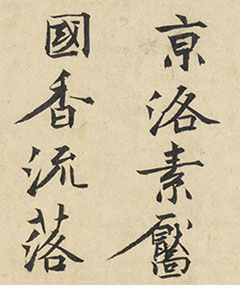 京洛素靨
國香流落